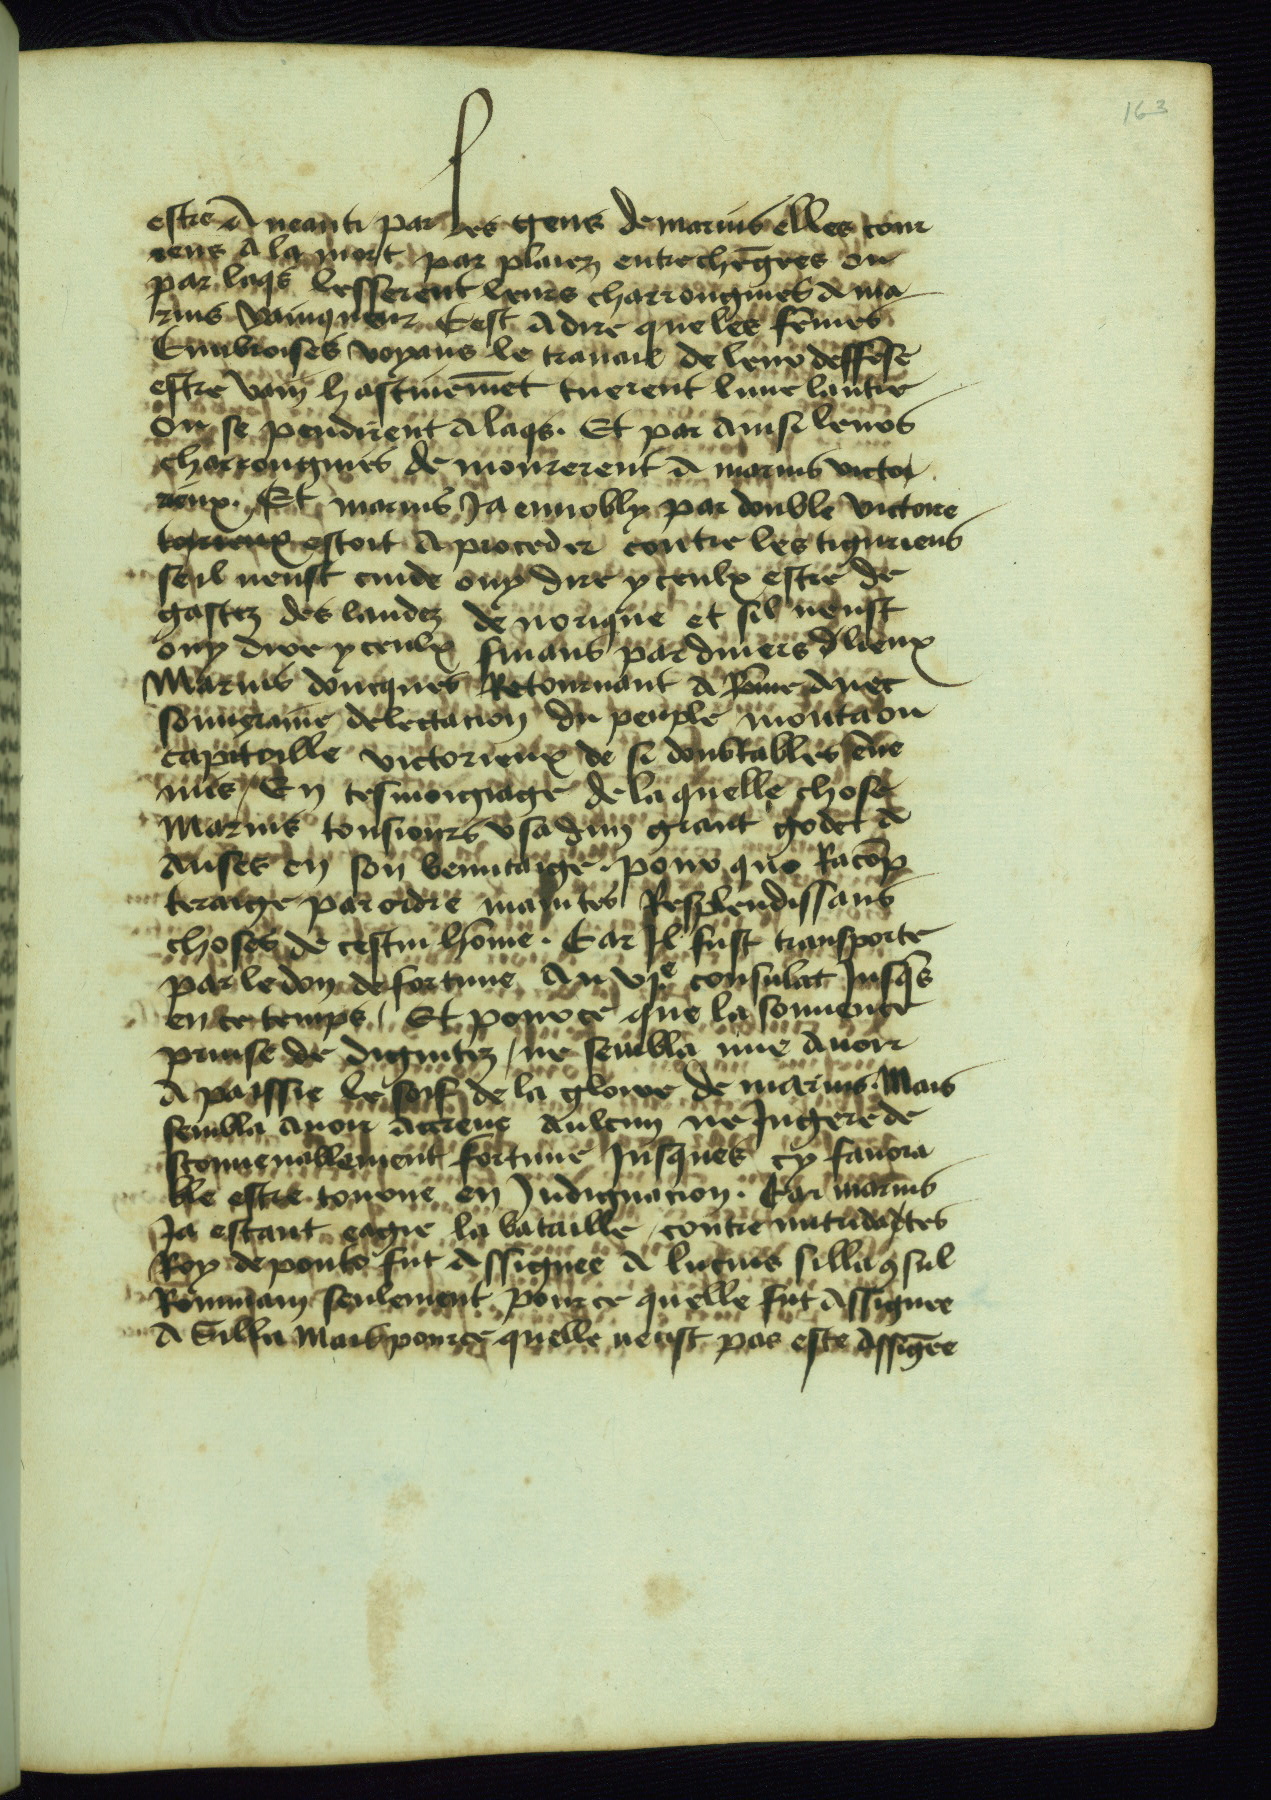 163
estre A neanti par les gens de marius elles cour
rens A la mort par plaiez entrechēgees ou
par laqs lesserent leurs charrongnies A ma
rius vainqueur Cest A dire que les fēmes
Embroises voyans le travail de leur deffēse
estre vain hastivemēt tuerent lune lautre
ou se pendirent A laqs. Et par Ainsi leurs
charrongnies demourerent A marius victo
rieux. Et marius Ja ennobly par double victoire
estoit A proceder contre les tiguriens
seil neust cuide ouy dire yceulx estre de
gastez des landez de norique et sil neust
ouy dire yceulx fuians par divers lieux
Marius doncques Retournant A Rōme Avec
souveraine delectacion du peuple monta ou
capitoille victorieux de si doubtables ēne
mis / En tesmoignage de la quelle chose
Marius tousiours usa dun grant godet A
Anses en son beuvraige. pour quo Racōp
teraige par ordre maintes Resplendissans
choses de cestui hōme. Car Il fust transporte
par le don de fortune Au vje consulat Jusqs
en ce temps / Et pource que la souvente
prinse de dignitez / ne sembla mie Avoir
Apaissie le soif de la gloire de marius. Mais
sembla Avoir Acreue Aulcun ne Jugere de
sconvenablement fortune Jusques cy favora
ble estre tournee en Indignacion. Car marius
Ja estant eagie la bataille contre mitridates
Roy de ponto fut Assignee A lucius silla 9sul
Rommain seulement pource quelle fut Assignee
A Silla Mais pource quelle neust pas este Assignēe